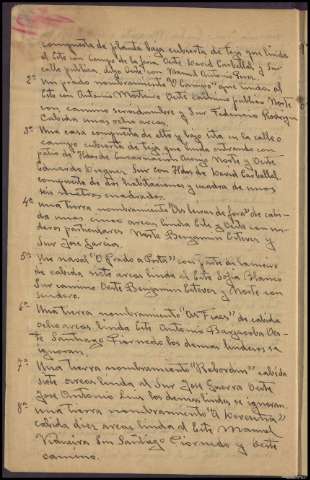 compuesta de planta baja cubierta de teja que linda
al Este con Campo de la Jena Oeste David Carballal y Sur
calle publica digo Oeste con Manuel Antonio
2ª Un prado nombramiento "O Campo" que linda al
Este con Antonio Martinez Oeste camino publico Norte
con camino servidumbre y Sur Fidencio Rodrigu
Cabida unos ocho areas.
3ª Una casa compuesta de alto y bajo sita en la calle o
campo cubierta de teja que linda entrando con
patio de Hdos de Encarnación Norte y Oeste
Eduardo Sur con Hdos de David Carballal
compuesta de dos habitaciones y cuadra de unos
seis metros cuadrados.
4ª una tierra nombramiento "As leiras de fora" de cabi-
da unos cinco areas linda Este y Oeste con sen-
deros particulares Norte Benjamin Estevez y
Sur Jose Garcia.
5ª Un nabal "O Prado a Porta" con parte de
de cabida siete areas linda al Este Sofia Blanco
Sur camino Oeste Benjamin Estevez y Norte con
sendero.
6ª Una tierra nombramiento "As Fixas" de cabida
ocho areas linda Este Antonio Oes-
te Santiago Piornedo los demas linderos se
ignoran.
7ª Una tierra nombramiento "Rebordon" cabida
siete areas linda al Sur Jose Guerra Oeste
Jose Antonio los demas lindes se ignoran.
8ª una tierra nombramiento
cabida diez areas linda al Este Manuel
Vidueira Sur Santiago Piornedo y Oeste
camino.